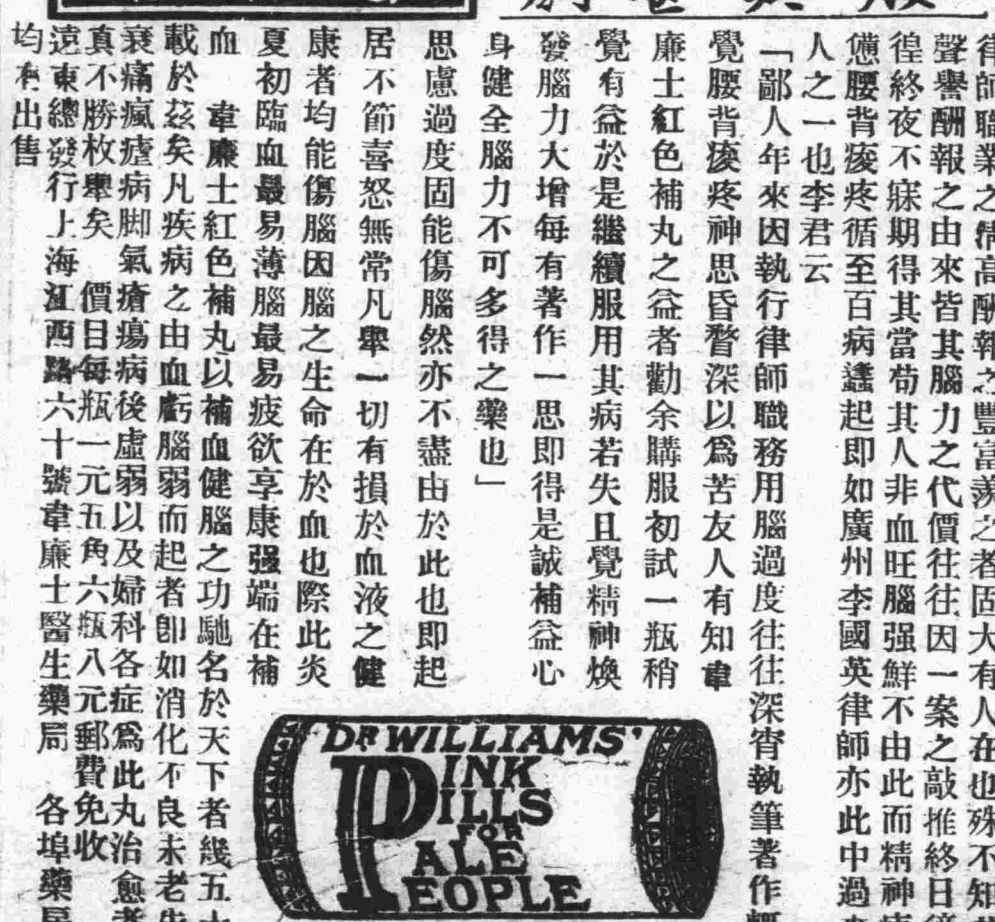 律師職業之清高酬報之豐富羨之者固大有人在也殊不知
聲譽酬報之由來皆其腦力之代價往往因一案之敲推終日
徨終夜不寐期得其當苟其人非血旺腦强鮮不由此而精神
憊腰背痠疼循至百病蠭起即如廣州李國英律師亦此中過
人之一也李君云
「鄙人年來因執行律師職務用腦過度往往深宵執筆著作輒
覺腰背痠疼神思昏瞀深以爲苦友人有知韋
廉士紅色補丸之益者勸余購服初試一瓶稍
覺有益於是繼續服用其病若失且覺精神煥
發腦力大增每有著作一思即得是誠補益心
身健全腦力不可多得之藥也」
思慮過度固能傷腦然亦不盡由於此也即起
居不節喜怒無常凡舉一切有損於血液之健
康者均能傷腦因腦之生命在於血也際此炎
夏初臨血最易薄腦最易疲欲享康强端在補
血 韋廉士紅色補丸以補血健腦之功馳名於天下者幾五十
載於茲矣凡疾病之由血虧腦弱而起者卽如消化不良未老先
衰痛瘋瘧病脚氣瘡瘍病後虛弱以及婦科各症爲此丸治愈者
真不勝枚舉矣 價目每瓶一元五角六瓶八元郵費免收
遠東總發行上海江西路六十號韋廉士醫生藥局 各埠藥房
均有出售
DR WILLIAMS'
PINK
PILLS
FOR
PALE
PEOPLE